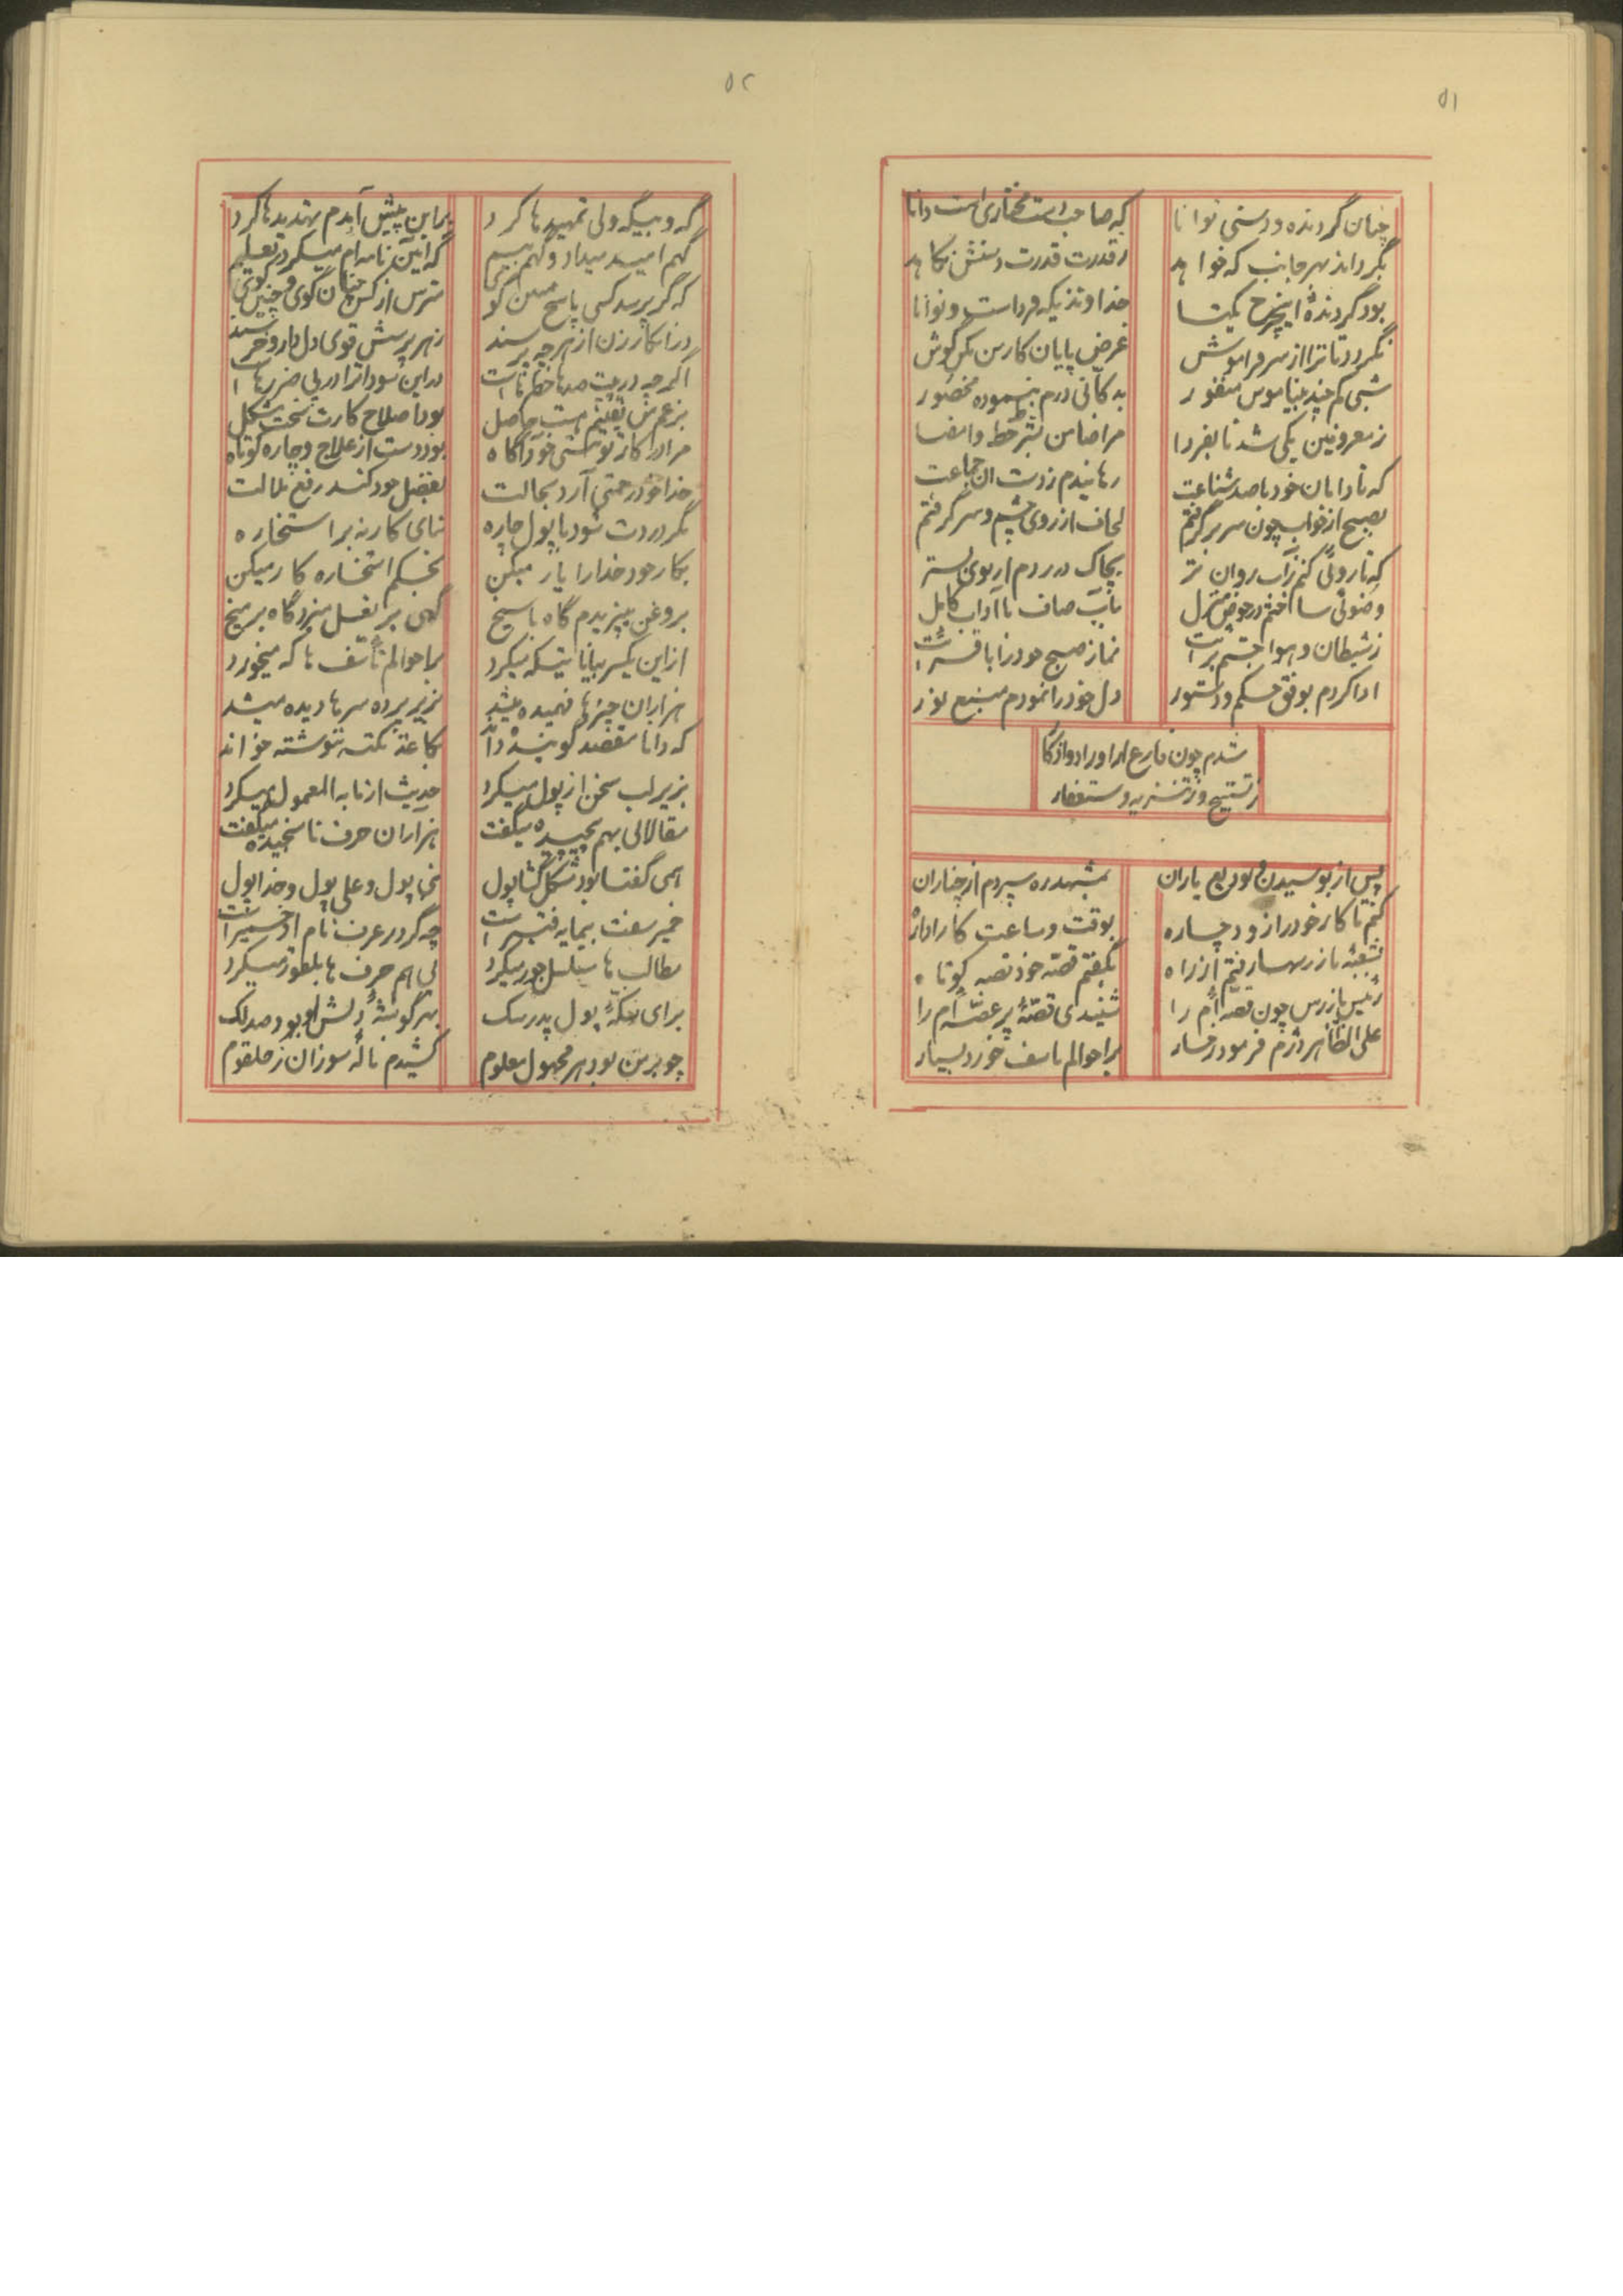 ۵۱
چنان گردنده و دستی توانا
که صاحب است مختاری است دانا
بگرداند بهر جانب که خواهد
ز قدرت قدرت دستش نکاهد
بود گردندهٔ اینچرخ یکتا
خداوندیکه فرد است و توانا
نگردد تا ترا از سر فراموش
غرض پایان کار من بکن گوش
شبی کم چند بیناموس منفور
به کانی درم بنموده محصور
ز معروفین یکی شد تا بفردا
مرا ضامن بشرط خط و امضا
که تا دامان خود با صد شناعت
رهانیدم ز دست آن جماعت
بصبح از خواب چون سر برگرفتم
لحاف از روی چشم و سر گرفتم
که تا روئی کنم ز آب روان تر
بچابک در ردم از بوی بستر
وضوئی ساختم در حوض منزل
بآب صاف با آداب کامل
ز شیطان و هوا جستم برائت
نماز صبح خود را با قرائت
ادا کردم بوفق حکم و دستور
دل خود را نمودم منبع نور
شدم چون فارغ از اوراد و اذکار
ز تسبیح و ز تنزیه و ستغفار
پس از بوسیدن و تودیع یاران
بمشهد ره سپردم از چناران
کنم تا کار خود را زود چاره
بوقت و ساعت کار اداره
بشعبهٔ بازرسها رفتم از راه
بگفتم قصّه خود قصه کوتاه
رئیس بازرس چون قصه‌ام را
شنیدی قصّهٔ پر غصّه‌ام را
علی الظاهر دژم فرمود رخسار
بر احوالم تاسف خورد بسیار
۵۲
گه و بیگه ولی تمهیدها کرد
بر این پیش آمدم تهدیدها کرد
گهم امید میداد و گهم بیم
گه آیین نامه‌ام میکرد تعلیم
که گر پرسد کسی پاسخ چنین گو
مترس از کس چنان گوی و چنین گوی
در انکار زن از هر چه پرسند
ز هر پرسش قوی دل دار و خرسند
اگر چه در پیت صدها خطرهاست
در این سودا ترا در پی ضررها
بزعم من یقینم هست حاصل
بود اصلاح کارت سخت مشکل
مرا در کار تو هستی خود آگاه
بود دست از علاج و چاره کوتاه
خدا خود رحمتی آرد بحالت
بفضل خود کند رفع ملالت
مگر دردت شود با پول چاره
بنای کار نه بر استخاره
بکار خود خدا را یار میکن
بحکم استخاره کار میکن
بروغن میپزیدم گاه با سیخ
گهی بر نعل میزد گاه بر میخ
از این یکسر بیانا تیکه میکرد
بر احوالم تأسف ها که میخورد
هزاران چیزها فهمیده میشد
بزیر پرده سرها دیده میشد
که دانا مقصد گوینده داند
بکاغذ نکته ننوشته خواند
بزیر لب سخن از پول میکرد
حدیث از ما به المعمول میکرد
مقالاتی بهم پیچیده میگفت
هزاران حرف ناسنجیده میگفت
همی گفتا بود مشکل گشا پول
نبی پول و علی پول و خدا پول
خمیر سفت بیمایه فتیر است
چه گر در عرف نام او خمیر است
مطالب ها مسلسل جور میکرد
لبی هم حرف ها بلغور میکرد
برای سکهٔ پول پدر سگ
بهر گوشهٔ دلش او بود و صد لک
چو بر من بود هر مجهول معلوم
کشیدم نالهٔ سوزان ز حلقوم